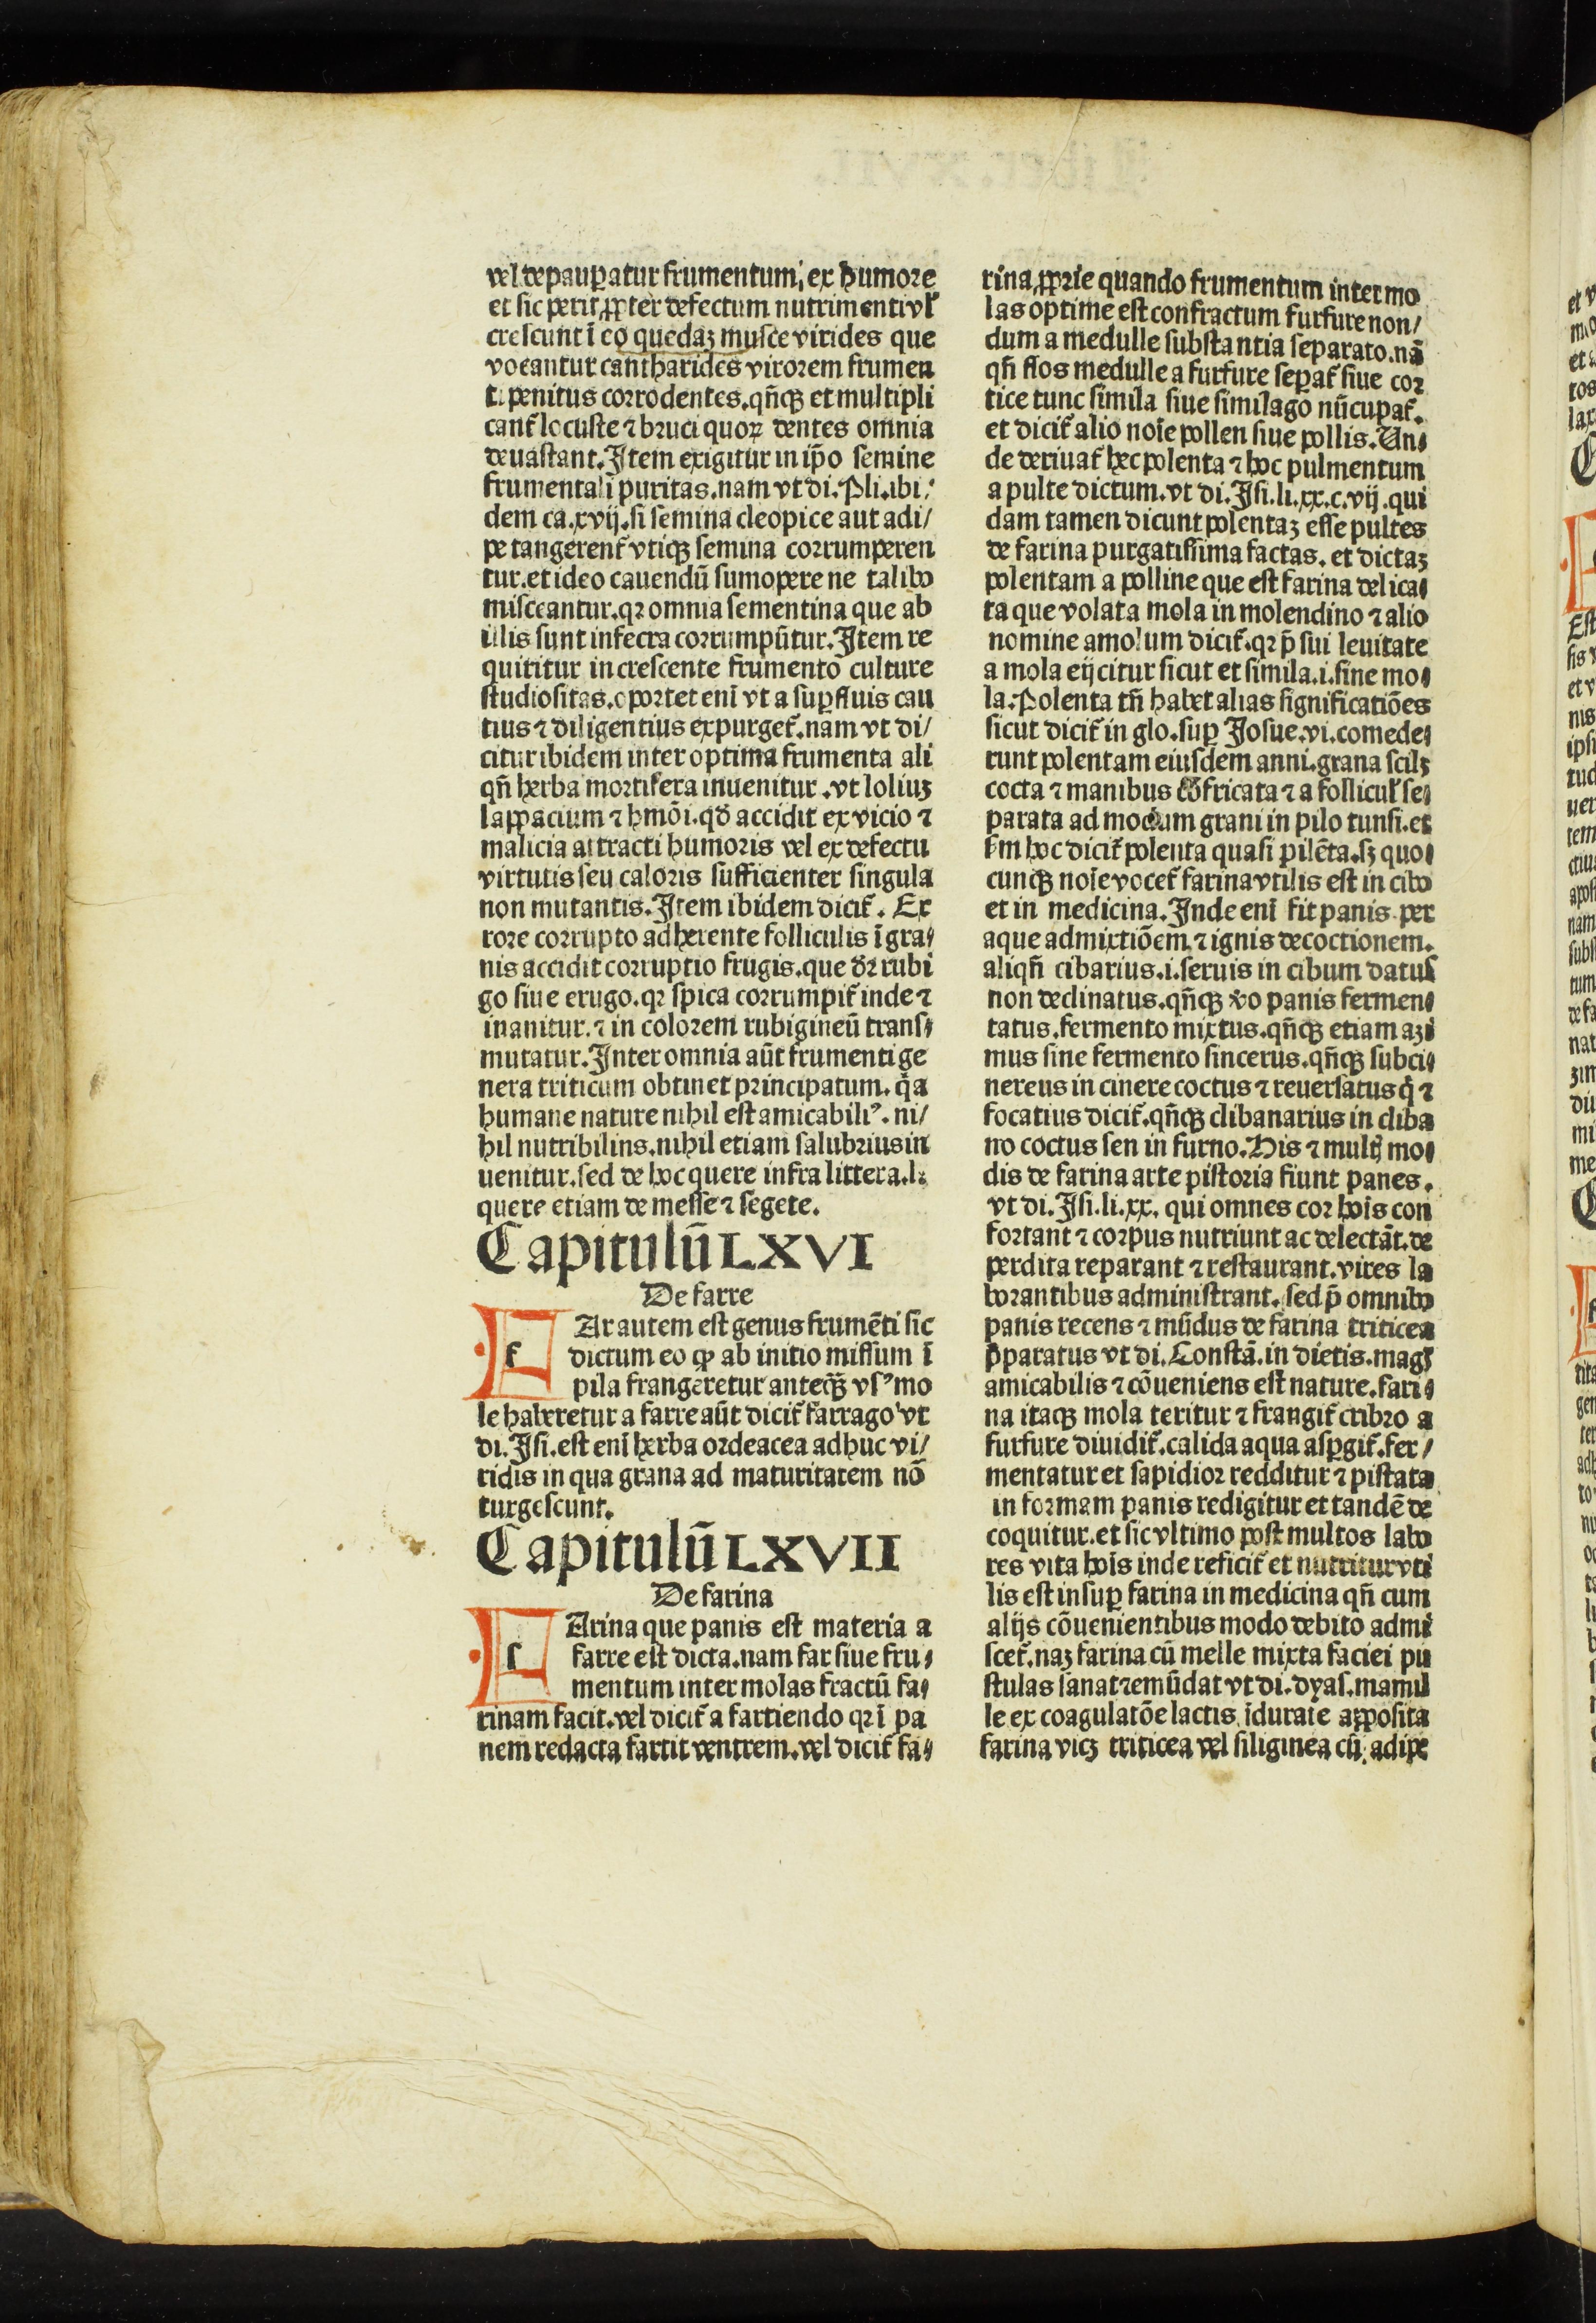 vel depauꝑatur frumentum, ex humore
et sic perit ꝓpter defectum nutrimenti vl̓
crescunt ī eo quedaꝫ musce virides que
vocantur cantharides virorem frumen
ti penitus corrodentes. qn̄cꝗ et multipli
cant̓ locuste ⁊ bruci quoꝝ dentes omnia
deuastant. Item exigitur in ip̄o semine
frumentali puritas. nam vt di. Pli. ibi/
dem ca. xvij. si semina cleopice aut adi/
pe tangerent̓ vtiqꝫ semina corrumperen
tur. et ideo cauendū sumopere ne talibꝰ
misceantur. qꝛ omnia sementina que ab
illis sunt infecta corrumpūtur. Item re
quiritur in crescente frumento culture
studiositas. oportet eni vt a suꝑfluis cau
tius ⁊ diligentius expurget̓. nam vt di/
citur ibidem inter optima frumenta ali
qn̄ herba mortifera inuenitur. vt loliuꝫ
lappacium ⁊ hmōi. qd̓ accidit ex vicio ⁊
malicia attracti humoris vel ex defectu
virtutis seu caloris sufficienter singula
non mutantis. Item ibidem dicit̓. Ex
rore corrupto adherente folliculis ī gra/
nis accidit corruptio frugis. que dꝛ rubi
go siue erugo. qꝛ spica corrumpit̓ inde ⁊
inanitur. ⁊ in colorem rubigineū trans/
mutatur. Inter omnia aūt frumenti ge
nera triticum obtinet principatum. qͣa
humane nature nihil est amicabiliꝰ. ni/
hil nutribilins. nihil etiam salubrius in
uenitur. sed de hoc quere infra littera. l.
quere etiam de messe ⁊ segete.
Capitulū LXVI
De farre
FAr autem est genus frumēti sic
dictum eo ꝙ ab initio missum ī
pila frangeretur anteqꝫ vsꝰ mo
le haberetur a farre aūt dicit̓ farrago vt
di. Isi. est eni herba ordeacea adhuc vi/
ridis in qua grana ad maturitatem nō
turgescunt.
Capitulū LXVII
De farina
FArina que panis est materia a
farre est dicta. nam far siue fru/
mentum inter molas fractū fa/
rinam facit. vel dicit̓ a fartiendo qꝛ ī pa
nem redacta fartit ventrem. vel dicit̓ fa/
rina ꝓprie quando frumentum inter mo
las optime est confractum furfure non/
dum a medulle substantia separato. nā
qn̄ flos medulle a furfure seꝑat̓ siue cor
tice tunc simila siue similago nūcupat̓.
et dicit̓ alio noīe pollen siue pollis. Un/
de deriuat̓ hec polenta ⁊ hoc pulmentum
a pulte dictum. vt di. Isi. li. xx. c. vij. qui
dam tamen dicunt polentaꝫ esse pultes
de farina purgatissima factas. et dictaꝫ
polentam a polline que est farina delica/
ta que volata mola in molendino ⁊ alio
nomine amolum dicit̓. qꝛ p̄ sui leuitate
a mola eijcitur sicut et simila. i. sine mo/
la. Polenta tn̄ habet alias significatiōes
sicut dicit̓ in glo. suꝑ Iosue. vi. comede/
runt polentam eiusdem anni. grana scilꝫ
cocta ⁊ manibus cōfricata ⁊ a follicul̓ se/
parata ad modum grani in pilo tunsi. et
sm hoc dicit̓ polenta quasi pilēta. sꝫ quo/
cunqꝫ noīe vocet̓ farina vtilis est in cibo
et in medicina. Inde eni fit panis per
aque admixtiōem ⁊ ignis decoctionem.
aliqn̄ cibarius. i. seruis in cibum datus
non declinatus. qn̄cꝗ v̓o panis fermen/
tatus. fermento mixtus. qn̄cꝗ etiam azi
mus sine fermento sincerus. qn̄cꝗ subci/
nereus in cinere coctus ⁊ reuersatus qͥ ⁊
focatius dicit̓. qn̄cꝗ clibanarius in cliba
no coctus sen in furno. His ⁊ mult̓ mo/
dis de farina arte pistoria fiunt panes.
vt di. Isi. li. xx. qui omnes cor hoīs con
fortant ⁊ corpus nutriunt ac delectāt. de
perdita reparant ⁊ restaurant. vires la
borantibus administrant. sed p̄ omnibꝰ
panis recens ⁊ mūdus de farina triticea
p̄paratus vt di. Constā. in dietis. magꝭ
amicabilis ⁊ cōueniens est nature. fari/
na itaqꝫ mola teritur ⁊ frangit̓ cribro a
furfure diuidit̓. calida aqua asꝑgit̓. fer/
mentatur et sapidior redditur ⁊ pistata
in formam panis redigitur et tandē de
coquitur. et sic vltimo post multos labo
res vita hoīs inde reficit̓ et nutritur vti
lis est insuꝑ farina in medicina qn̄ cum
alijs cōuenientibus modo debito admi
scet̓. naꝫ farina cū melle mixta faciei pu
stulas sanat ⁊ emūdat vt di. dyas. mamil
le ex coagulatōe lactis īdurate apposita
farina vicꝫ triticea vel siliginea cū adipe